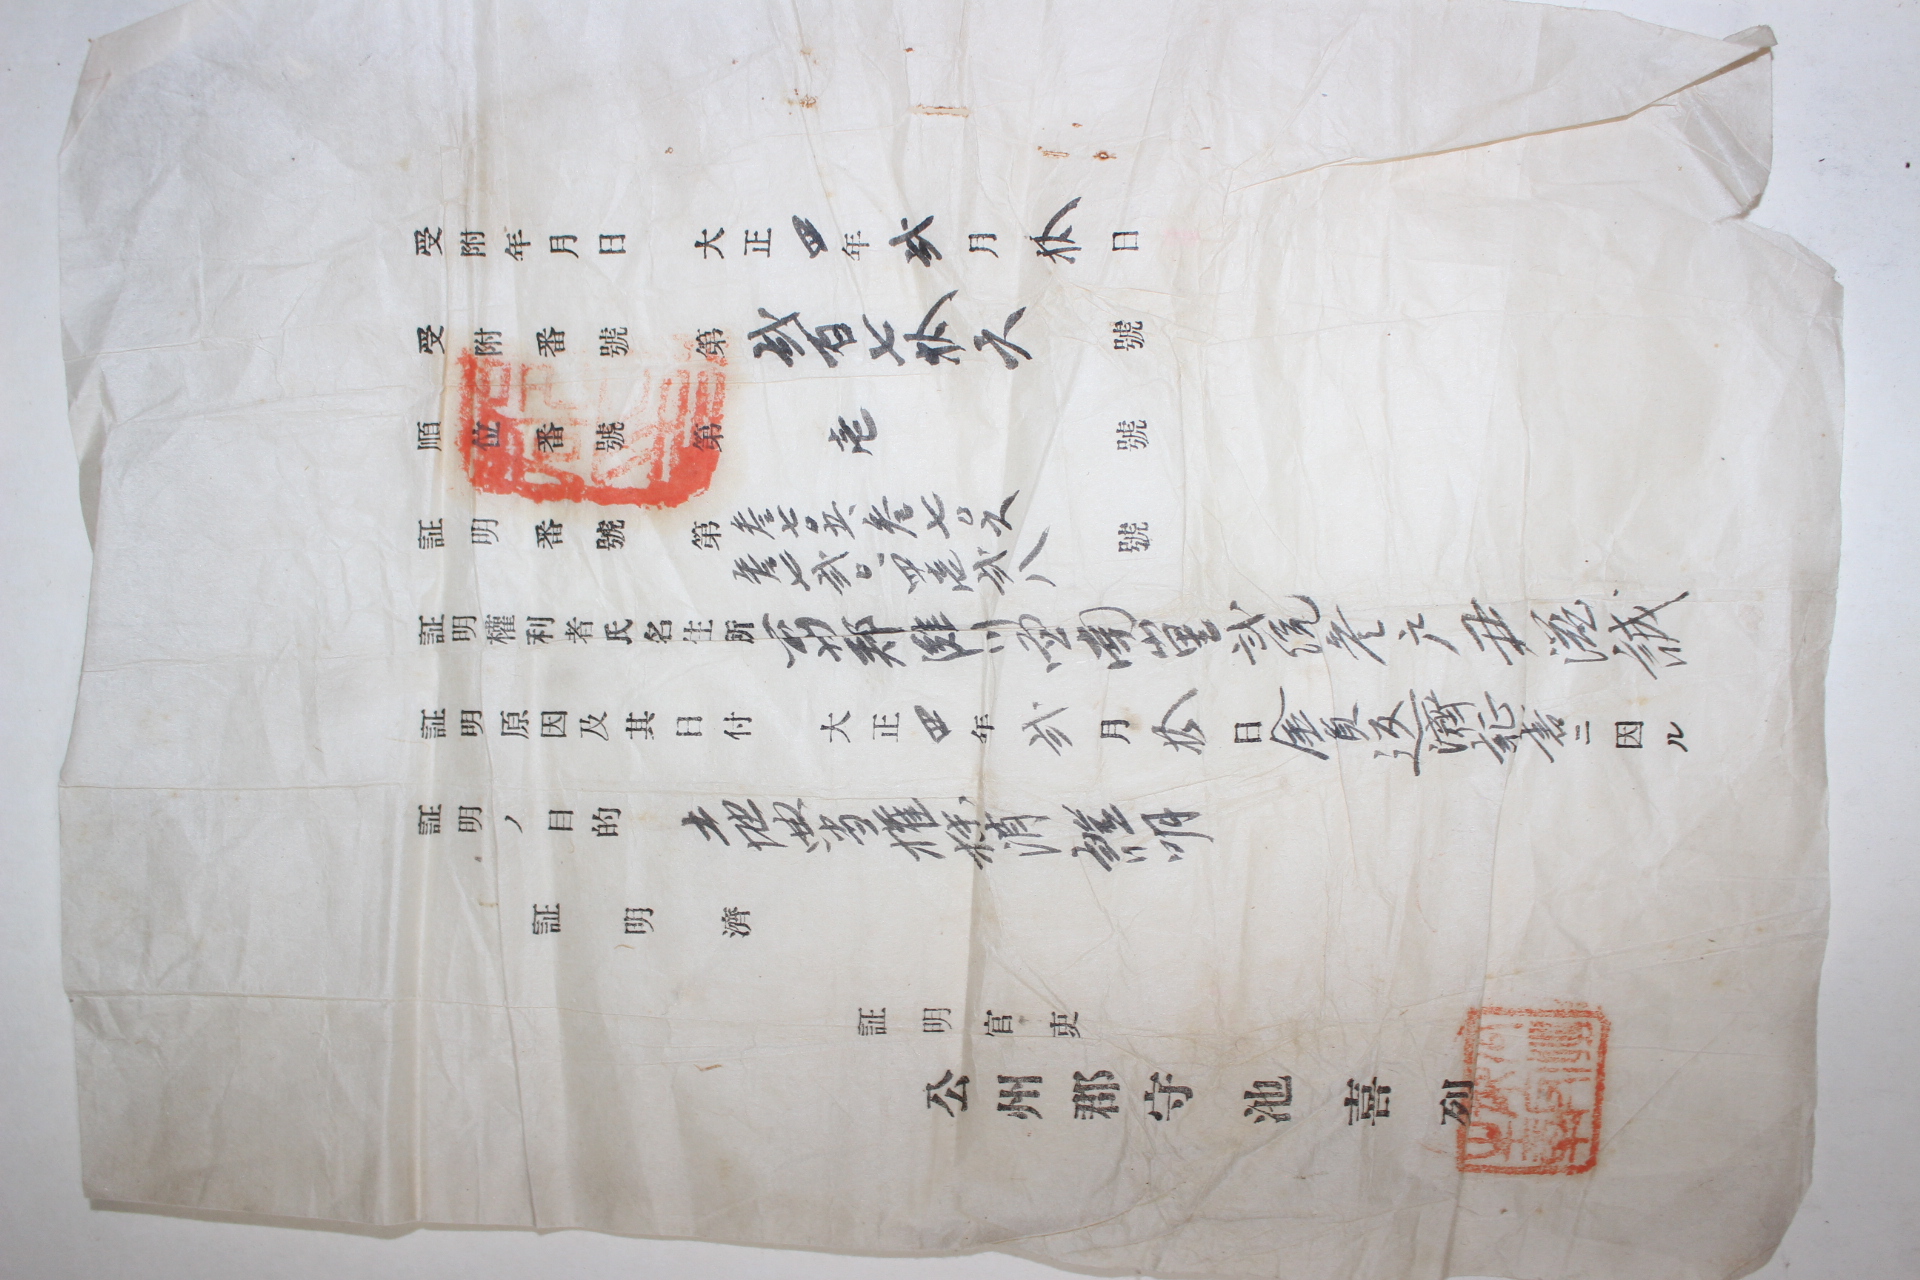 受附年月日　大正四年弐月拾日
受附番號　第弐百七拾六號
順位番號　第壱號
証明番號　第叁七〇五、叁七〇六
叁七弐〇、四壱弐八號
証明權利者氏名住所　郡灘川面南山里弐統叁戸尹滋誠
証明原因及其日付　大正四年弐月拾日金員返濟証書ニ因ル
証明ノ目的　土地典当權抹消證明
証明濟
証明官吏
公州郡守池喜列